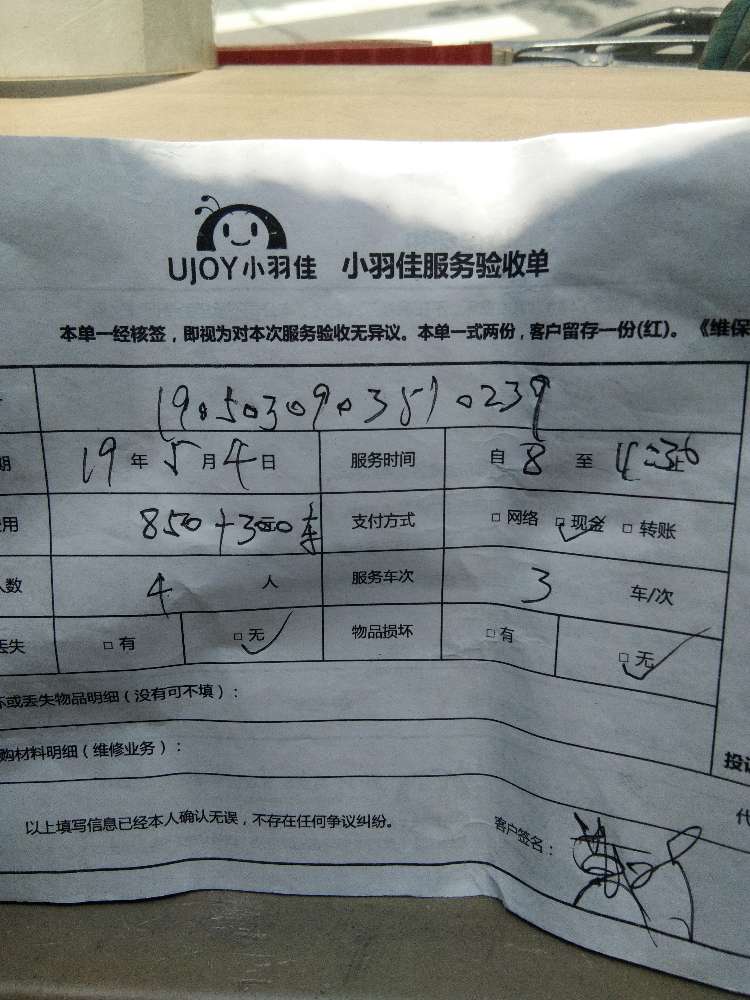 UJOY小羽佳 小羽佳服务验收单
本单一经核签，即视为对本次服务验收无异议。本单一式两份，客户留存一份(红)。《维保
期 19年5月4日 服务时间 自8至
用 850+300 支付方式 □网络 □现金 □转账
人数 4人 服务车次 3 车/次
丢失 □有 □无 物品损坏 □有 □无
坏或丢失物品明细（没有可不填）：
购材料明细（维修业务）：
投诉
以上填写信息已经本人确认无误，不存在任何争议纠纷。 客户签名：
代